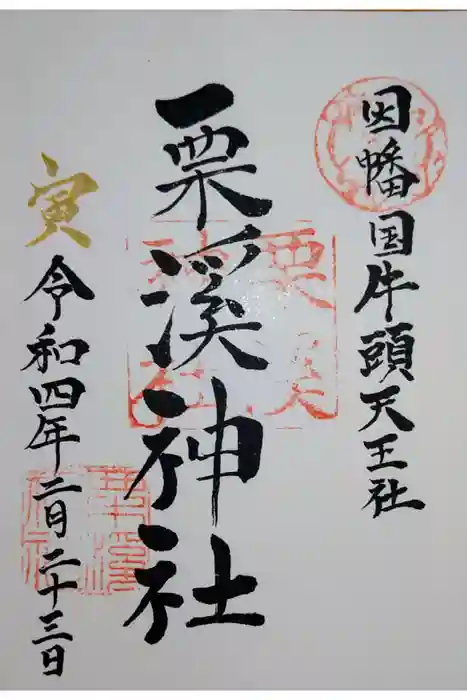 因幡国牛頭天王社
栗溪神社
寅
令和四年二月二十三日